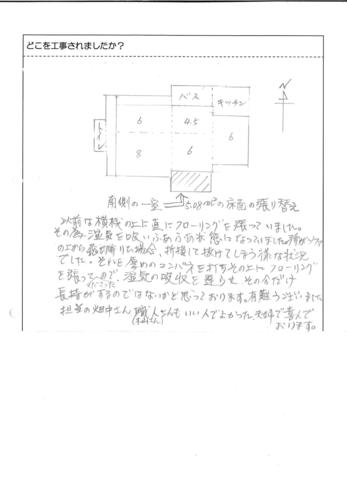 どこを工事されましたか？
N
バス
キッチン
トイレ
6
4.5
6
8
6
南側の一室 5.08m²の床面の張り替え
以前な横桟の上に直にフローリングを張っていました。
その為、湿気を吸いふあふあ状態になっていました。孫がソファ
の上から飛び降りた場合、折損して抜けてしまう様な状況
でした。それを厚めのコンパネを打ちその上にフローリング
を張ったので、湿気の吸収を遅らせ その分だけ
長持がするのではないかと思っております。有難うございました
担当の畑中さん 職人さんもいい人でよかった。夫婦で喜んで
おります。